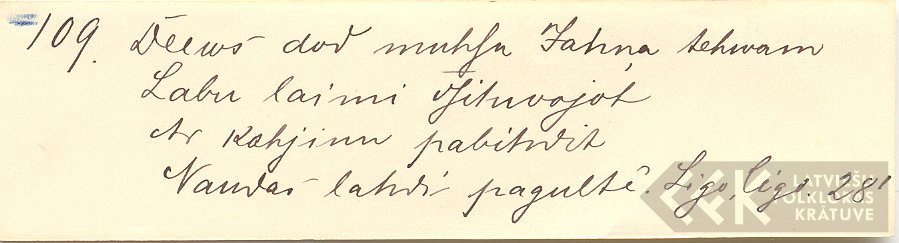 109. Deews dod muhsu Jahņa tehwam
Labu laimi dsihwojot
Ar kahjinu pabihdit
Naudas lahdi pagultē. Ligo, ligo. 28¹
LATVIEŠU
FOLKLORAS
KRĀTUVE